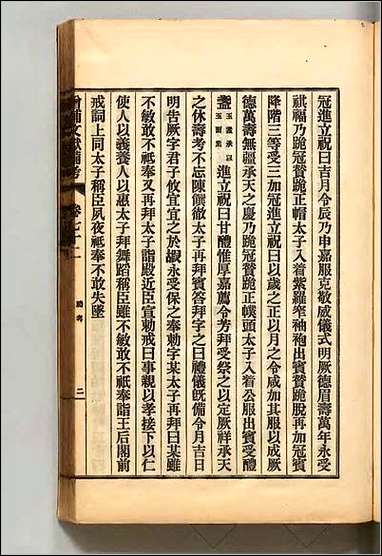 冠進立祝曰吉月令辰乃申嘉服克敬威儀式明厥德眉壽萬年永受
祺福乃跪冠賛跪正帽太子入着紫羅窄袖袍出賓賛跪脫再加冠賓
降階三等受三加冠進立祝曰以歲之正以月之令咸加其服以成厥
德萬壽無疆承天之慶乃跪冠賛跪正幞頭太子入着公服出賓受醴
盞玉盞承以玉面進立祝曰甘醴惟厚嘉薦令芳拜受祭之以定厥祥承天
之休壽考不忘陳饌徹太子再拜賓答拜字之曰禮儀旣備令月吉日
明告厥字君子攸宜宜之於嘏永受保之奉勅字某太子再拜曰某雖
不敏敢不祇奉又再拜太子詣殿近臣宣勅戒曰事親以孝接下以仁
使人以義養人以惠太子拜舞蹈稱臣雖不敏敢不祇奉詣王后閤前
戒詞上同太子稱臣夙夜祇奉不敢失墜
增補文獻備考 卷七十二 禮考 三